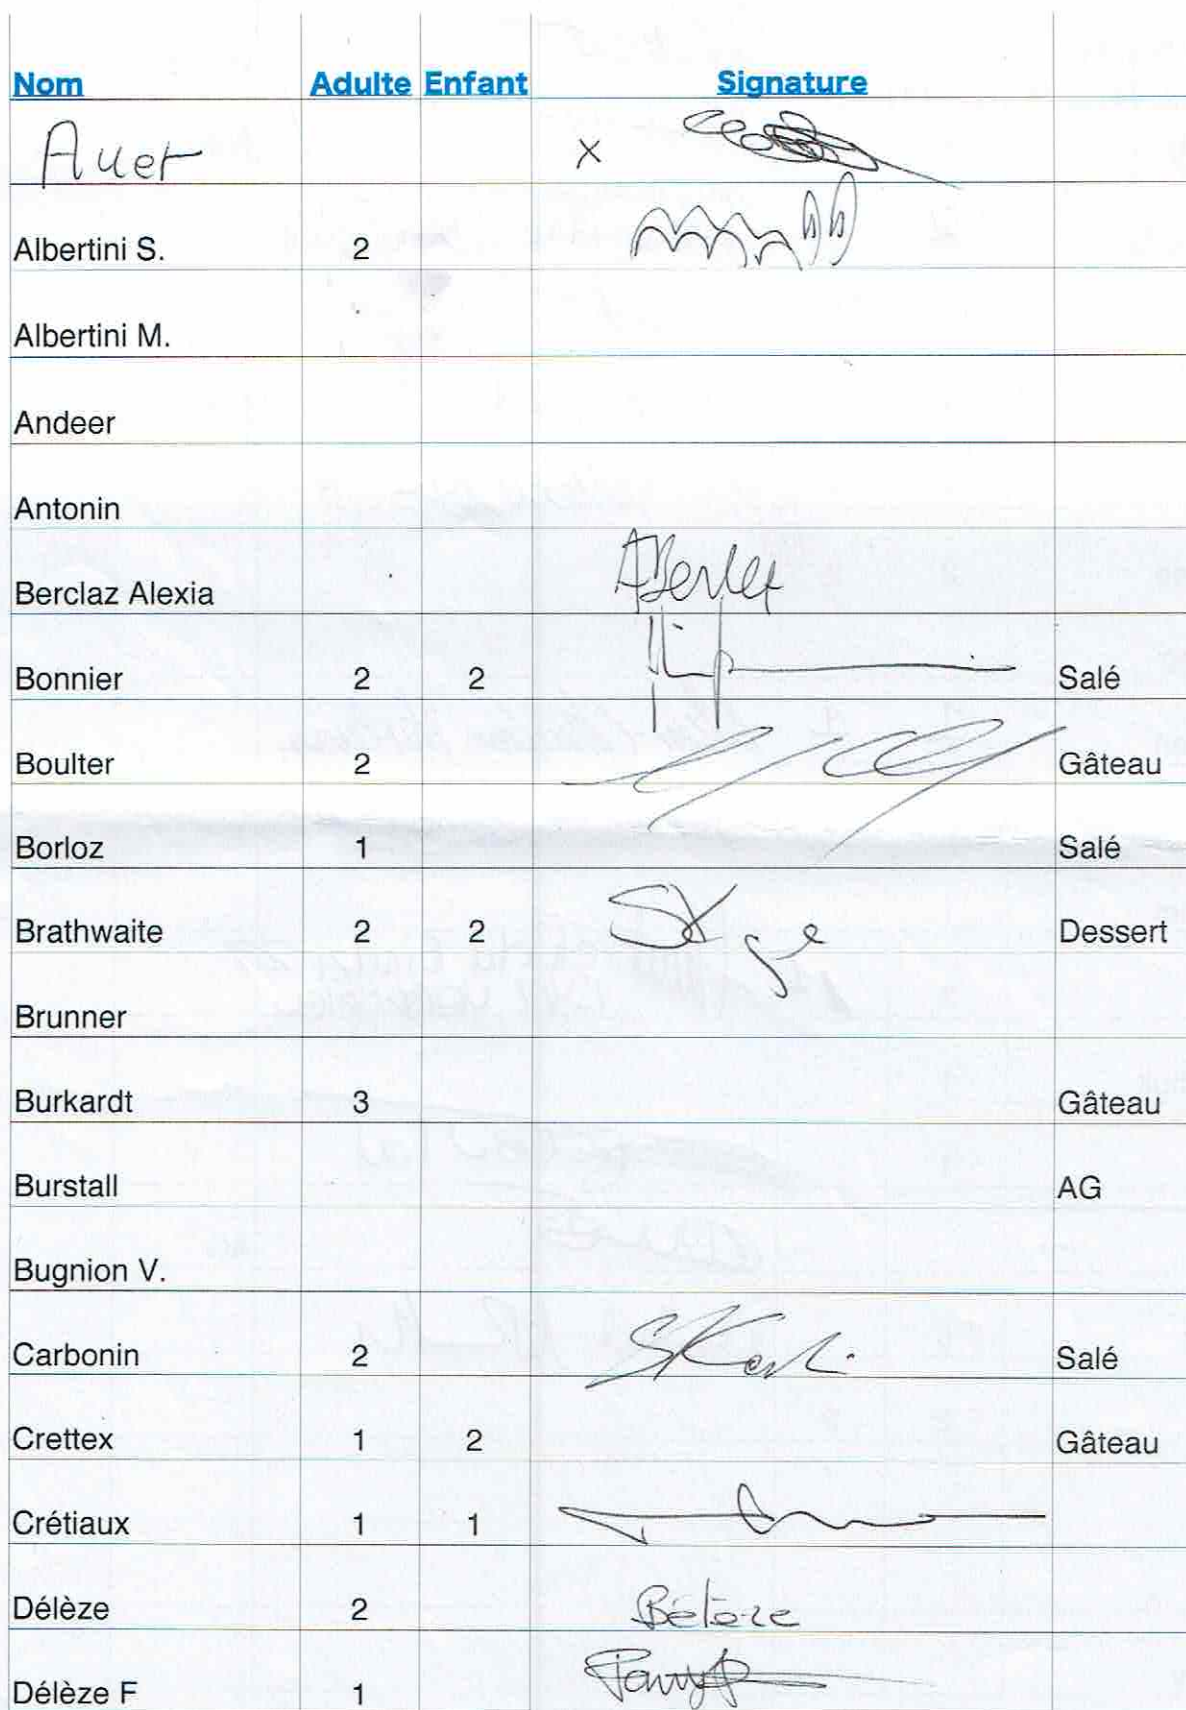 Nom Adulte Enfant Signature
Auer x
Albertini S. 2
Albertini M.
Andeer
Antonin
Berclaz Alexia
Bonnier 2 2 Salé
Boulter 2 Gâteau
Borloz 1 Salé
Brathwaite 2 2 Dessert
Brunner
Burkardt 3 Gâteau
Burstall AG
Bugnion V.
Carbonin 2 Salé
Crettex 1 2 Gâteau
Crétiaux 1 1
Délèze 2
Délèze F 1